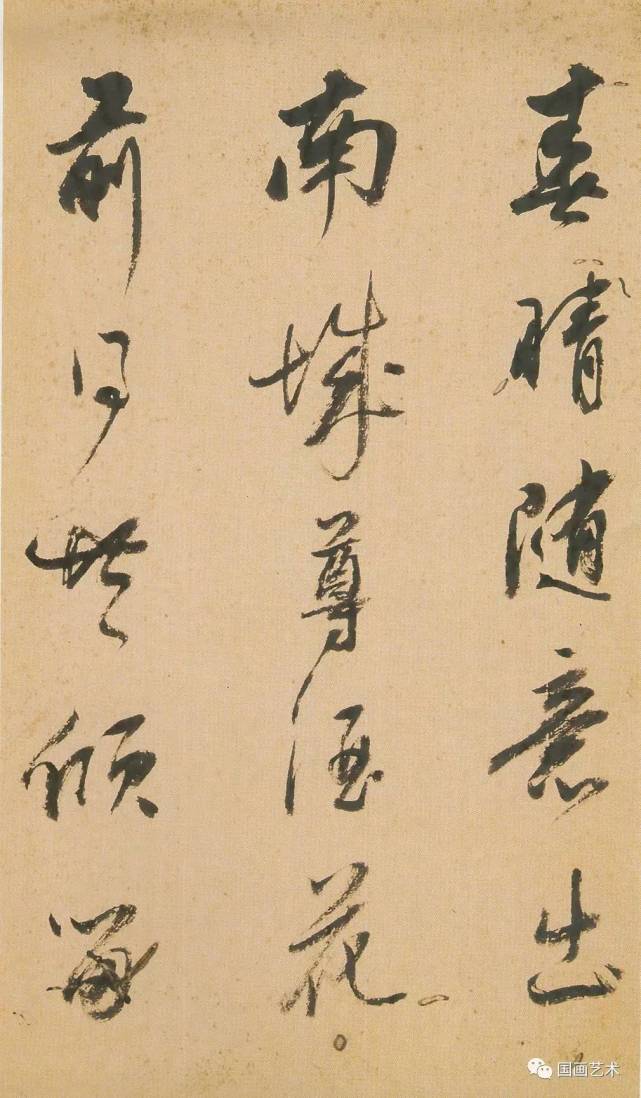 春晴随意出
南城尊酒花
前得共倾
国画艺术